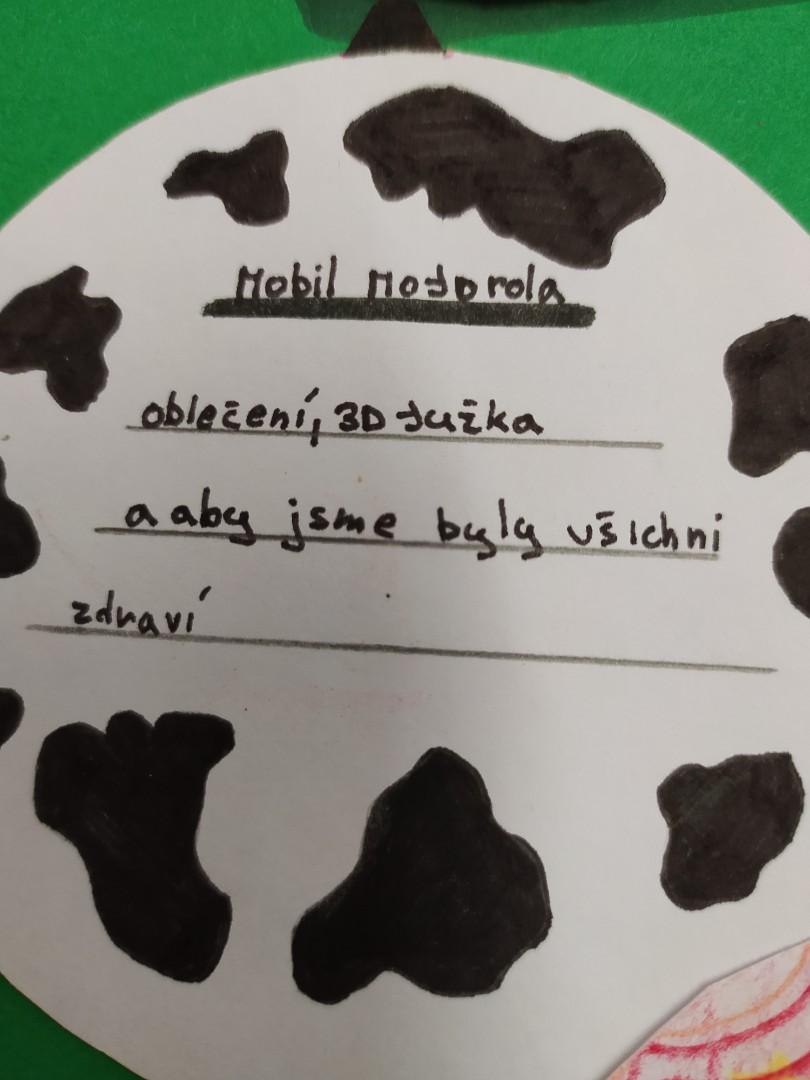 Mobil Motorola
oblečení, 3D tužka
a aby jsme byly všichni
zdraví